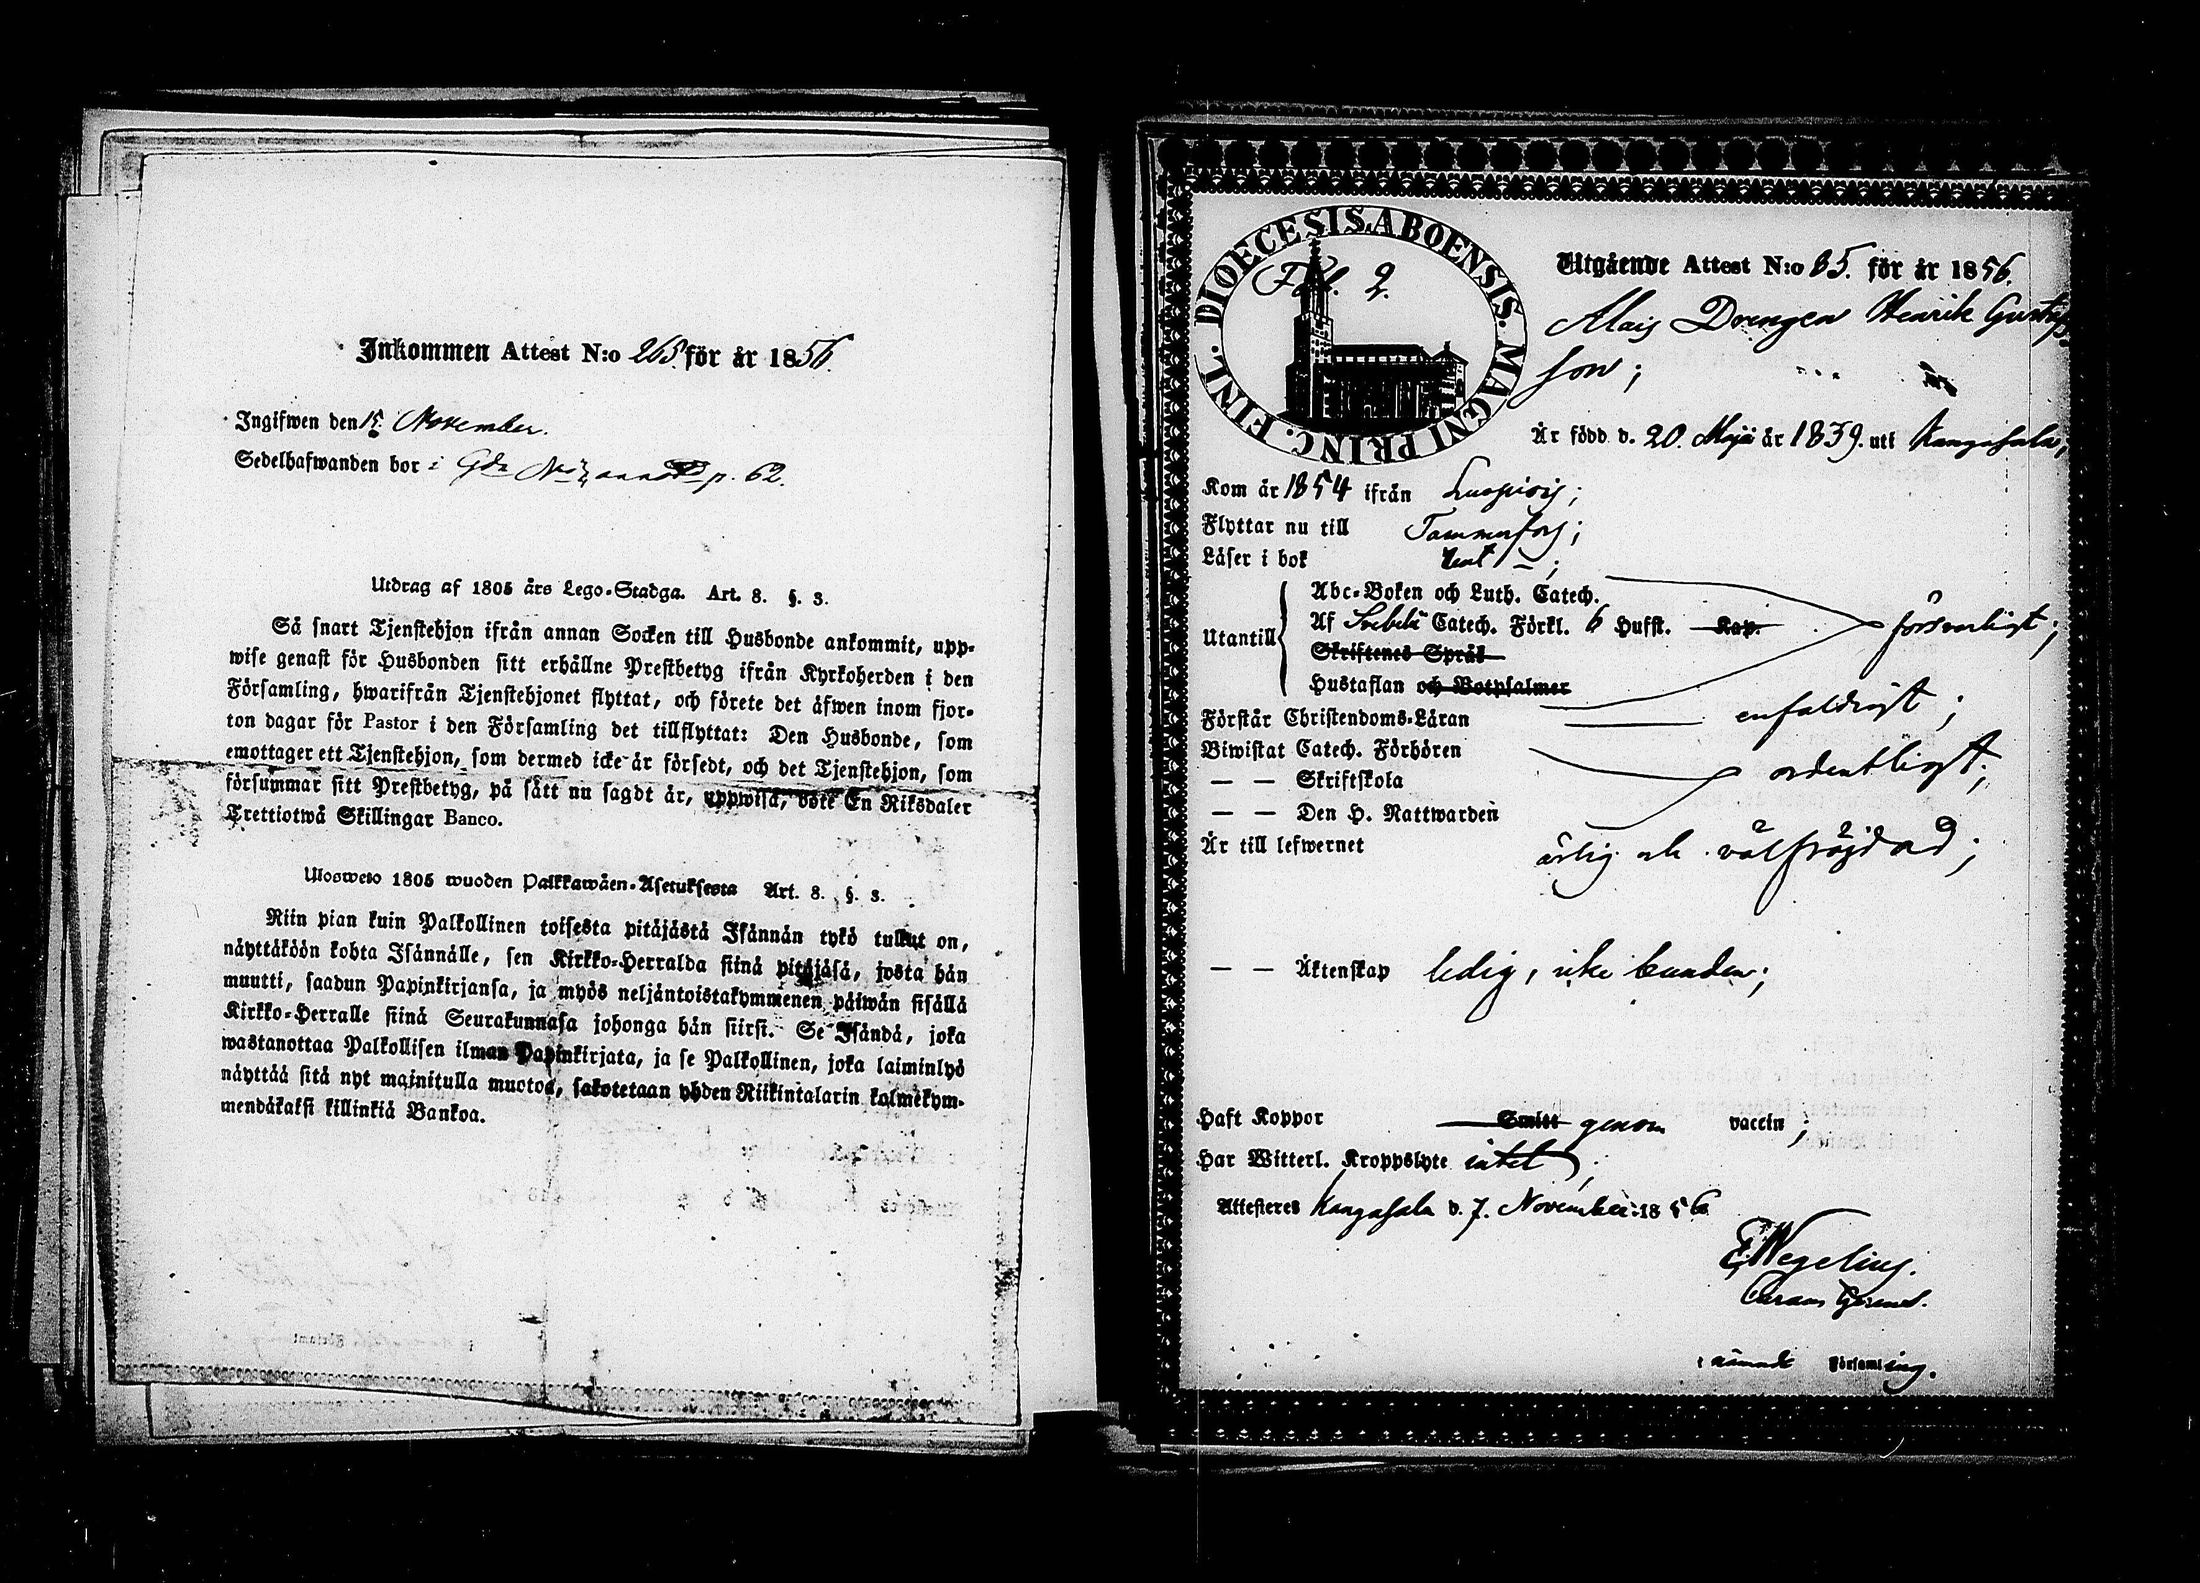 Inkommen Attest N:o 265. för år 1856.
Ingifwen den 15. November.
Sedelhafwanden bor i Gdn p. 62.
Utdrag af 1805 års Lego-Stadga. Art. 8. §. 3.
Så snart Tjenstehjon ifrån annan Socken till Husbonde ankommit, upp-
wise genast för Husbonden sitt erhållne Prestbetyg ifrån Kyrkoherden i den
Församling, hwarifrån Tjenstehjonet flyttat, och förete det äfwen inom fjor-
ton dagar för Pastor i den Församling det tillflyttat: Den Husbonde, som
emottager ett Tjenstehjon, som dermed icke är försedt, och det Tjenstehjon, som
försummar sitt Prestbetyg, på sätt nu sagdt är, uppwisa, böte En Riksdaler
Trettiotwå Skillingar Banco.
Ulosweto 1805 wuoden Palkkawäen-Asetuksesta Art. 8. §. 3.
Niin pian kuin Palkollinen toisesta pitäjästä Isännän tykö tullut on,
näyttäköön kohta Isännälle, sen Kirkko-Herralda siinä pitäjäsä, josta hän
muutti, saadun Papinkirjansa, ja myös neljäntoistakymmenen päiwän sisällä
Kirkko-Herralle siinä Seurakunnasa johonga hän siirsi. Se Isändä, joka
wastanottaa Palkollisen ilman Papinkirjata, ja se Palkollinen, joka laiminlyö
näyttää sitä nyt mainitulla muotoa, sakotetaan yhden Riikintalarin kolmekym-
mendäkaksi killinkiä Bankoa.
DIOECESIS. ABOENSIS. MAGNI PRINC. FINL.
Fol. 2.
Utgående Attest N:o 85. för år 1856.
Drengen Henrik Gustafs
son;
Är född d. 20. Maji år 1839. uti Kangasala;
Kom år 1854 ifrån
Flyttar nu till Tammerfors;
Läser i bok
Utantill
Abc-Boken och Luth. Catech.
Af Svebelii Catech. Förkl. 6 Hufst. Kap.
Skriftenes Språk
Hustaflan och Botpsalmer
försvarligt;
Förstår Christendoms-Läran enfaldigt;
Biwistat Catech. Förhören
— — Skriftskola ordentligt;
— — Den H. Nattwarden
Är till lefwernet ärlig och välfräjdad;
— — Äktenskap ledig, icke bunden;
Haft Koppor Smitt genom vaccin;
Har Witterl. Kroppslyte intet;
Attesteres Kangasala d. 7. November 1856
E. Wegelius.
Curam Gerens.
i nämnde Församling.